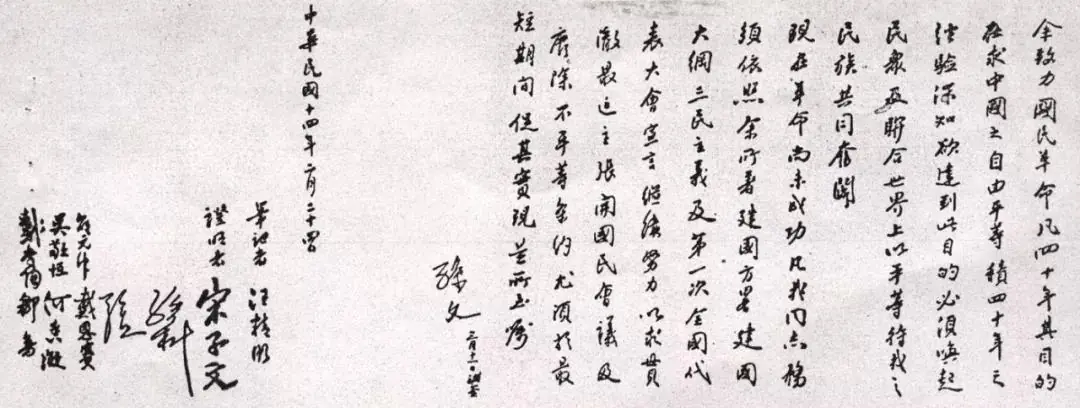 余致力國民革命凡四十年其目的
在求中國之自由平等積四十年之
經驗深知欲達到此目的必須喚起
民衆及聯合世界上以平等待我之
民族共同奮鬭
現在革命尚未成功凡我同志務
須依照余所著建國方畧建國
大綱三民主義及第一次全國代
表大會宣言繼續努力以求貫
澈最近主張開國民會議及
廢除不平等条約尤須於最
短期間促其實現是所至囑
孫文 三月十一日補簽
中華民國十四年二月二十四日
筆記者 汪精衛
證明者 宋子文
孫科
邵元冲 戴恩賽
吳敬恒 何香凝
鄒魯